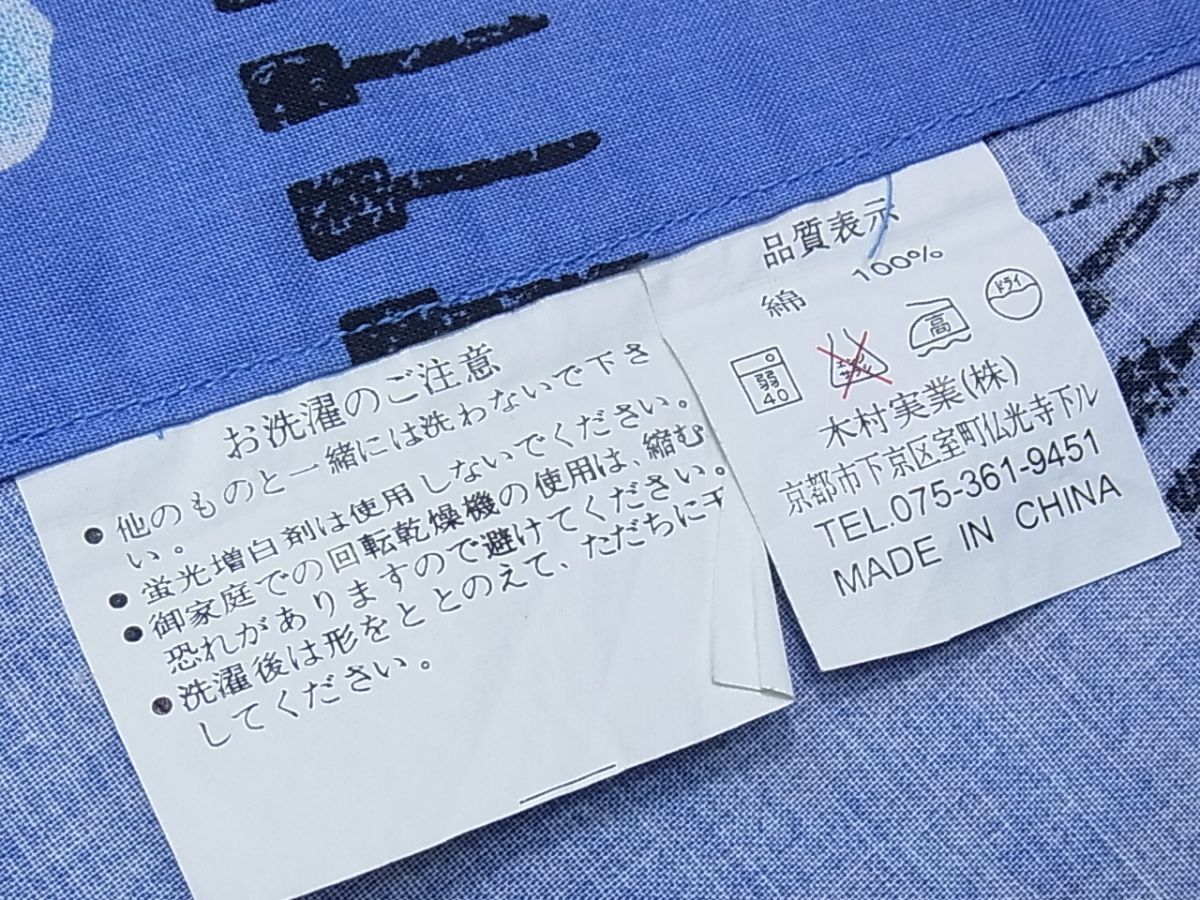 お洗濯のご注意
● 他のものと一緒には洗わないで下さ
い。
● 蛍光増白剤は使用しないでください。
● 御家庭での回転乾燥機の使用は、縮む
恐れがありますので避けてください。
● 洗濯後は形をととのえて、ただちに干
してください。
品質表示
綿 100%
弱
40
エンソ
サラシ
高
ドライ
木村実業(株)
京都市下京区室町仏光寺下ル
TEL.075-361-9451
MADE IN CHINA